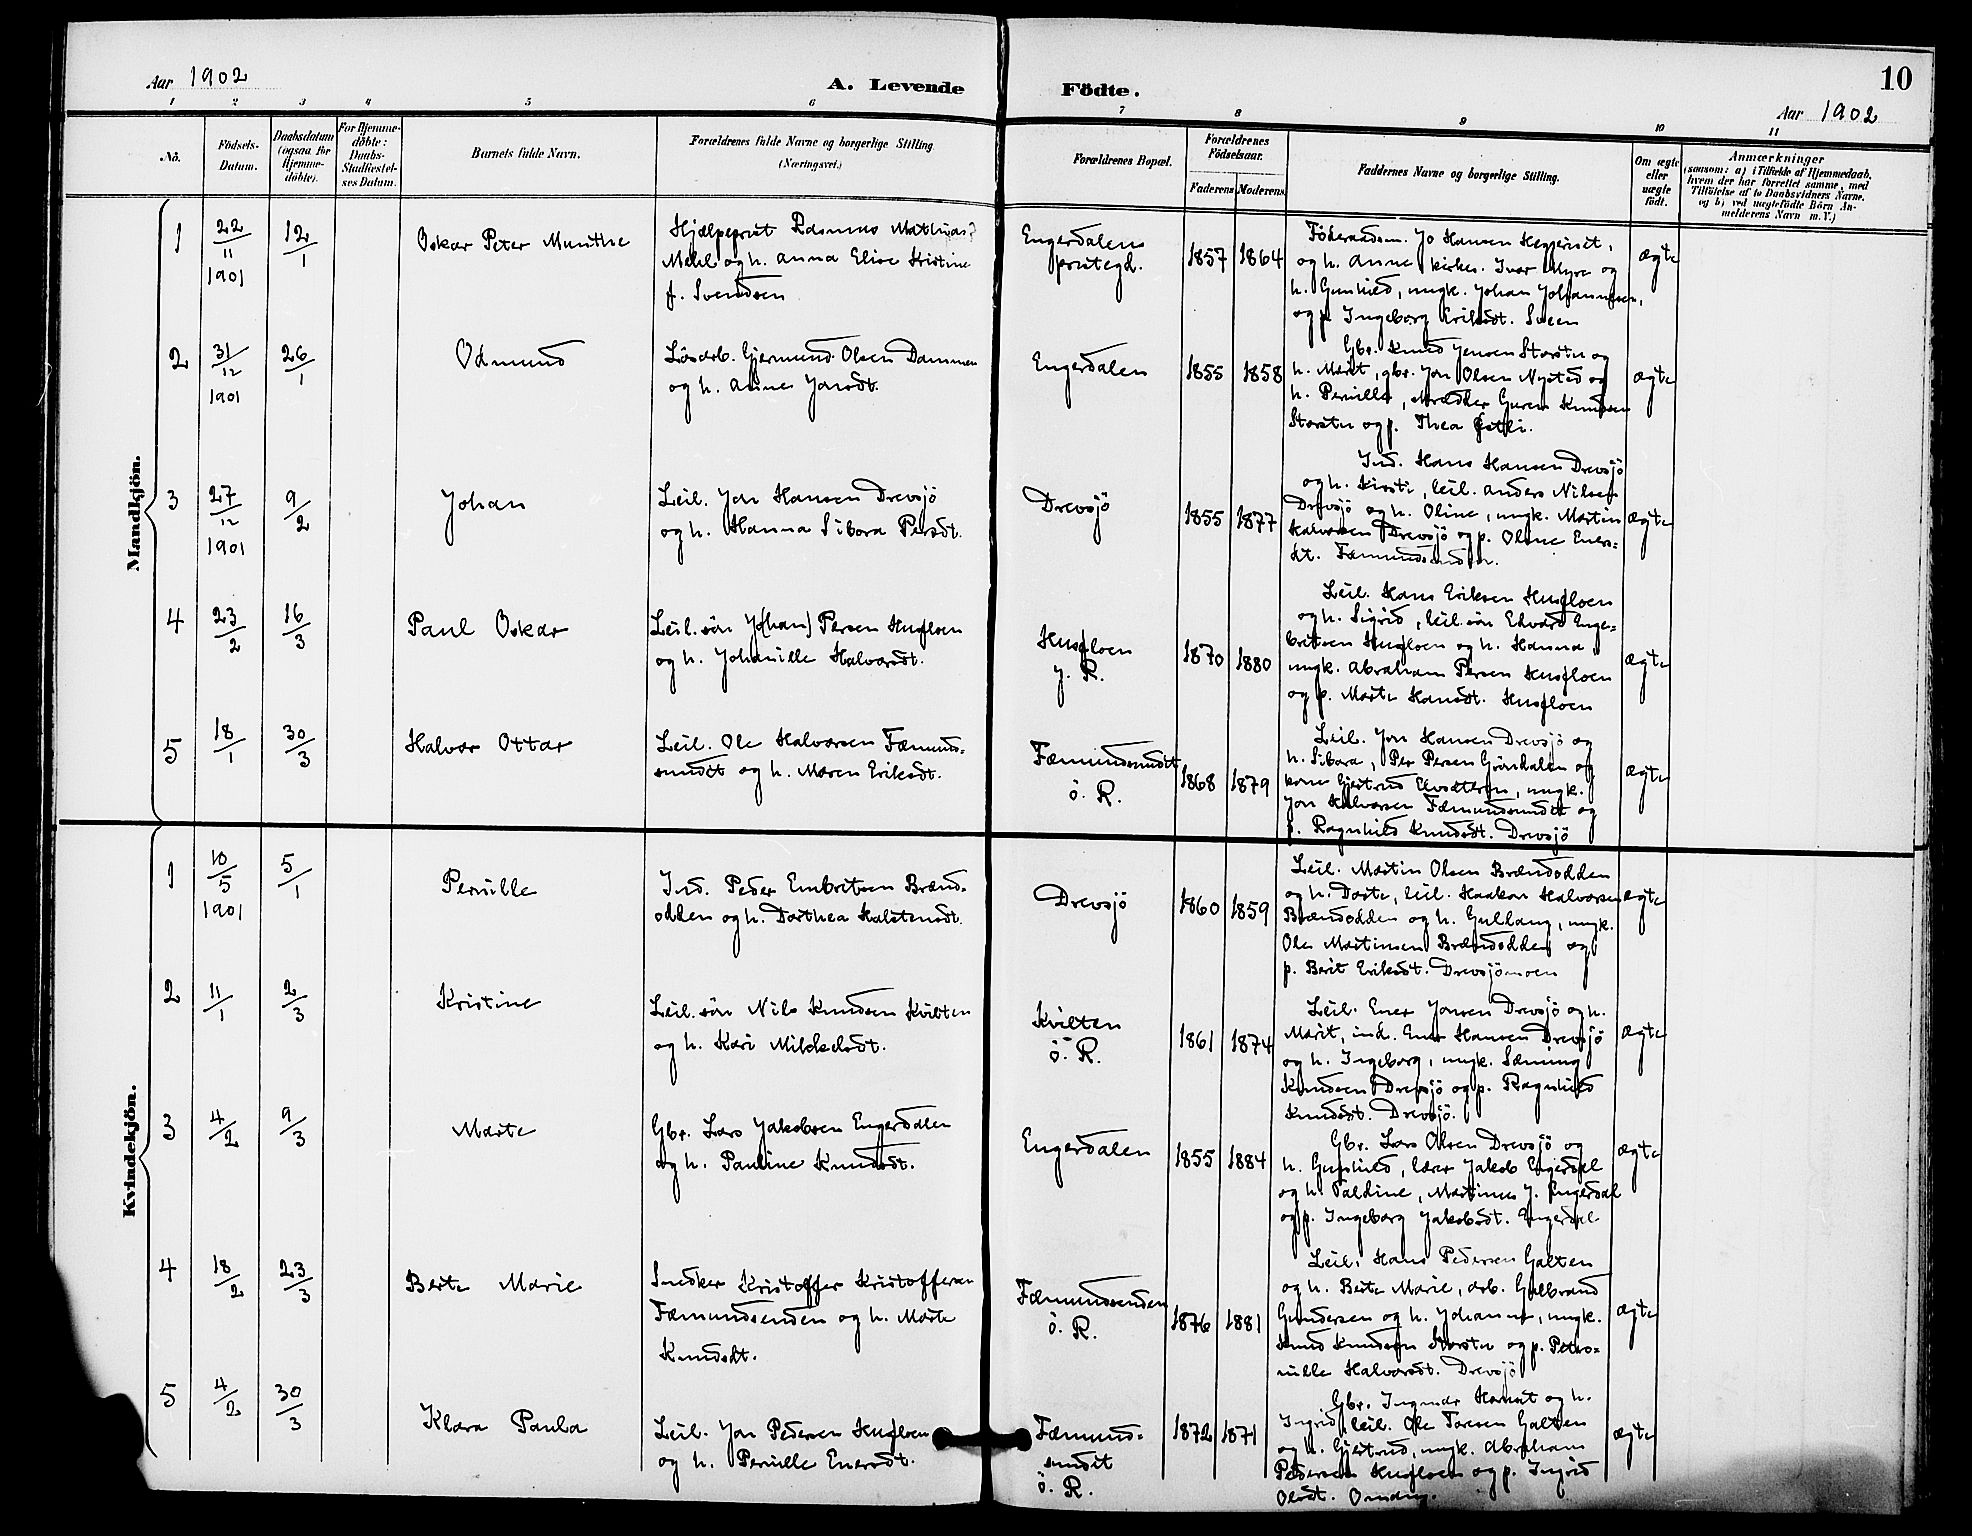 Aar 1902
A. Levende
Födte.
10
Aar 1902
1 2 3 4 5 6 7 8 9 10 11
No.
Födsels-
Datum.
Daabsdatum
(ogsaa for
Hjemme-
döbte).
For Hjemme-
döbte:
Daabs-
Stadfæstel-
ses Datum.
Barnets fulde Navn.
Forældrenes fulde Navne og borgerlige Stilling
(Næringsvei.)
Forældrenes Bopæl.
Forældrenes
Födselsaar.
Faderens Moderens
Faddernes Navne og borgerlige Stilling.
Om ægte
eller
uægte
födt.
Anmærkninger
(saasom: a) i Tilfælde af Hjemmedaab,
hvem der har forrettet samme, med
Tilföielse af to Daabsvidners Navne,
og b) ved uægtefödte Börn An-
melderens Navn m. V.)
Mandkjön.
1
22/11
1901
12/1
Oskar Peter Munthe
Hjælpeprest Rasmus Mathias?
Mehl og h. Anna Elise Kristine
f. Svendsen
Engerdalens
prstegd.
1857 1864
Föderaadsm. Jo Hansen Heggeriset,
og h. Anne, kirkes. Ivar Myre og
h. Gunhild, ungk. Johan Johannesen,
og p. Ingeborg Eriksdt. Sveen
ægte
2
31/12
1901
26/1
Odmund
Lösarb. Gjermund Olsen Dammen
og h. Anne Jonsdt.
Engerdalen
1855 1858
Gbr. Knud Jensen Storstu og
h. Marit, gbr. Jon Olsen Nysted og
h. Pernille, Guren Knudsen
Storstu og p. Thea Östli.
ægte
3
27/12
1901
9/2
Johan
Leil. Jon Hansen Drevsjö
og h. Hanna Sibora Persdt.
Drevsjö
1855 1877
Ind. Hans Hansen Drevsjö
og h. Kirsti, leil. Anders Nilsen
Drevsjö og h. Oline, ungk. Martin
Halvorsen Drevsjö og p. Oline Eners-
dt. Fæmundsenden.
ægte
4
23/2
16/3
Paul Oskar
Leil. sön Jo(han) Persen Husfloen
og h. Johanille Halvorsdt.
Husfloen
y. R.
1870 1880
Leil. Hans Eriksen Husfloen
og h. Sigrid, leil. sön Edvard Enge-
bretsen Husfloen og h. Hanna,
ungk. Abraham Persen Husfloen
og p. Marte Hansdt. Husfloen
ægte
5
18/1
30/3
Halvor Ottar
Leil. Ole Halvorsen Fæmund-
sundet og h. Maren Eriksdt.
Fæmundsundet
ö. R.
1868 1879
Leil. Jon Hansen Drevsjö og
h. Sibora, Per Persen Gröndalen og
kone Gjertrud Elvsætteren, ungk.
Jon Halvorsen Fæmundsundet og
p. Ragnhild Knudsdt. Drevsjö
ægte
Kvindekjön.
1
10/5
1901
5/1
Pernille
Ind. Peder Embretsen Brænd-
odden og h. Dorthea Halstensdt.
Drevsjö
1860 1859
Leil. Martin Olsen Brændodden
og h. Dorte, leil. Haakon Halvorsen
Brændodden og h. Gullaug, ungk.
Ole Martinsen Brændodden og
p. Berit Eriksdt. Drevsjömoen
ægte
2
11/1
2/3
Kristine
Leil. sön Nils Knudsen Kvilten
og h. Kari Mikkelsdt.
Kvilten
ö. R.
1861 1874
Leil. Ener Jonsen Drevsjö og h.
Marit, ind. Ener Hansen Drevsjö
og h. Ingeborg, ungk. Sæming
Knudsen Drevsjö og p. Ragnhild
Knudsdt. Drevsjö.
ægte
3
4/2
9/3
Marte
Gbr. Lars Jakobsen Engerdalen
og h. Pauline Knudsdt.
Engerdalen
1855 1884
Gbr. Lars Olsen Drevsjö og
h. Gunhild, lærer Jakob Engerdal
og h. Paldine, Martinus J. Engerdal
og p. Ingeborg Jakobsdt. Engerdal
ægte
4
18/2
23/3
Berte Marie
Snedker Kristoffer Kristoffersen
Fæmundsenden og h. Marte
Knudsdt.
Fæmundsenden
ö. R.
1876 1881
Leil. Hans Pedersen Galten
og h. Berte Marie, arb. Gulbrand
Gundersen og h. Johanne, ungk.
Knud Knudsen Storstu og p. Petro-
nille Halvorsdt. Drevsjö
ægte
5
4/2
30/3
Klara Paula
Leil. Jon Pedersen Husfloen
og h. Pernille Enersdt.
Fæmund-
sundet
ö. R.
1872 1871
Gbr. Ingmar og h.
Ingrid, leil. Ole Toresen Galten
og h. Gjertrud, ungk. Abraham
Pedersen Husfloen og p. Ingrid
Olsdt.
ægte